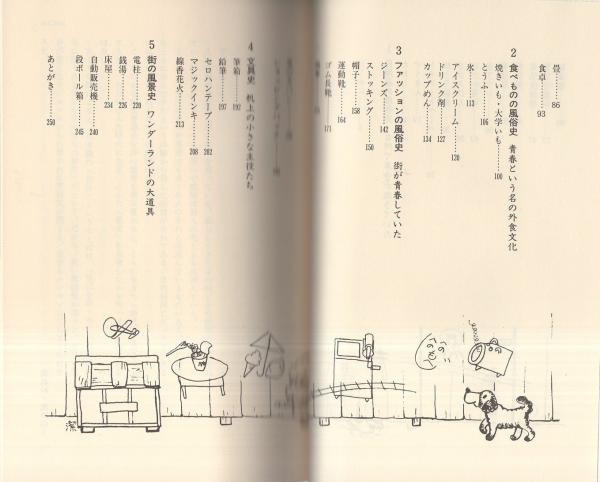 畳……86
食卓……93
2 食べものの風俗史 青春という名の外食文化
焼きいも・大学いも……100
とうふ……106
氷……113
アイスクリーム……120
ドリンク剤……127
カップめん……134
3 ファッションの風俗史 街が青春していた
ジーンズ……142
ストッキング……150
帽子……158
運動靴……164
ゴム長靴……171
4 文具史 机上の小さな主役たち
筆箱……192
鉛筆……197
セロハンテープ……202
マジックインキ……208
線香花火……213
5 街の風景史 ワンダーランドの大道具
電柱……220
銭湯……226
床屋……234
自動販売機……240
段ボール箱……245
あとがき……250
潔